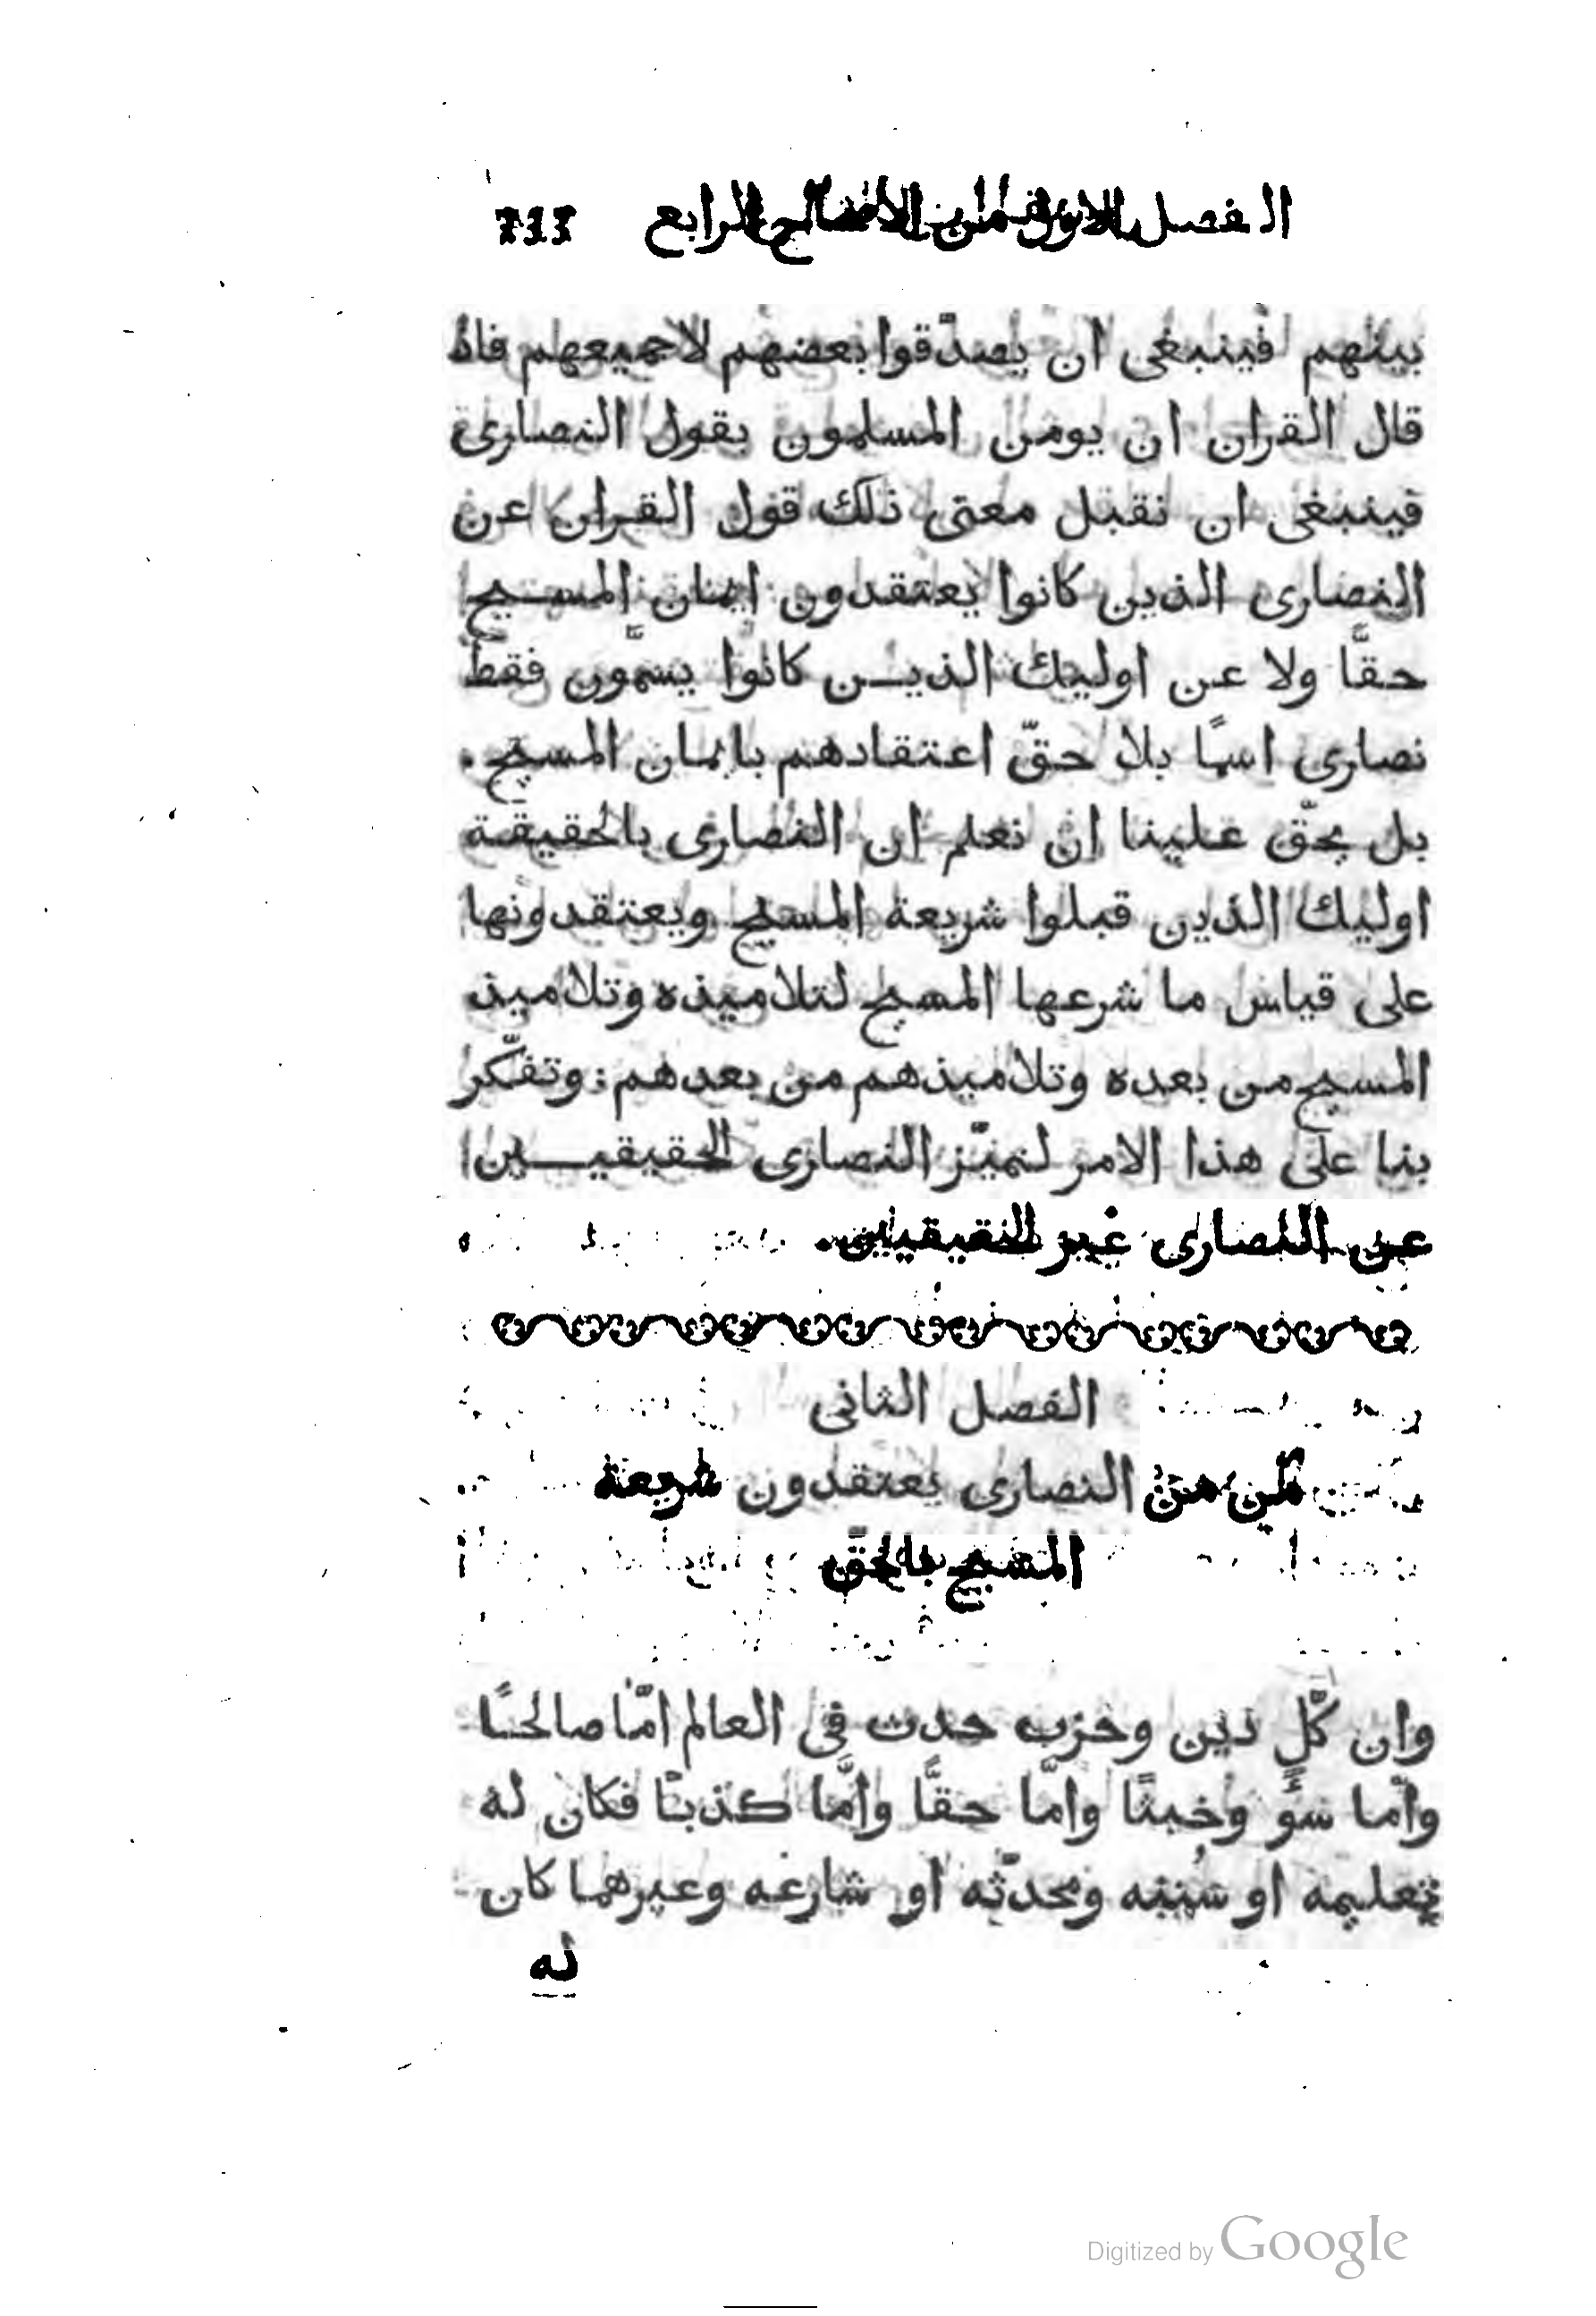 الفصل الاول من الاصل الرابع
بينهم فينبغى ان يصدّقوا بعضهم لا جميعهم فاذ
قال القران ان يومن المسلمون بقول النصارى
فينبغى ان نقبل معنى ذلك قول القران عن
النصارى الذين كانوا يعتقدون ايمان المسيح
حقّا ولا عن اوليك الذين كانوا يسمّون فقط
نصارى اسمًا بلا حقّ اعتقادهم بايمان المسيح.
بل يحقّ علينا ان نعلم ان النصارى بالحقيقة
اوليك الذين قبلوا شريعة المسيح ويعتقدونها
على قياس ما شرعها المسيح لتلاميذه وتلاميذ
المسيح من بعده وتلاميذهم من بعدهم: وتفكّر
بنا على هذا الامر لنميّز النصارى الحقيقيين
عن النصارى غير الحقيقيين.
الفصل الثانى
من النصارى يعتقدون شريعة
المسيح بالحقّ
وان كلّ دين وحزب حدث فى العالم امّا صالحًا
وامّا سوٌ وخبثًا وامّا حقًّا وامّا كذبًا فكان له
تعليمه او سُننه ومحدّثه او شارعه وغيرهما كان
له
Digitized by Google